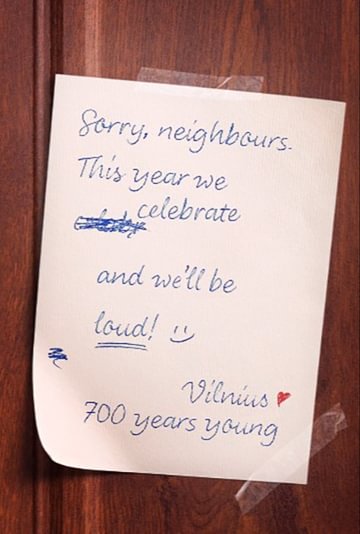 Sorry, neighbours.
This year we
celebrate
and we'll be
loud! :)
Vilnius ♥
700 years young